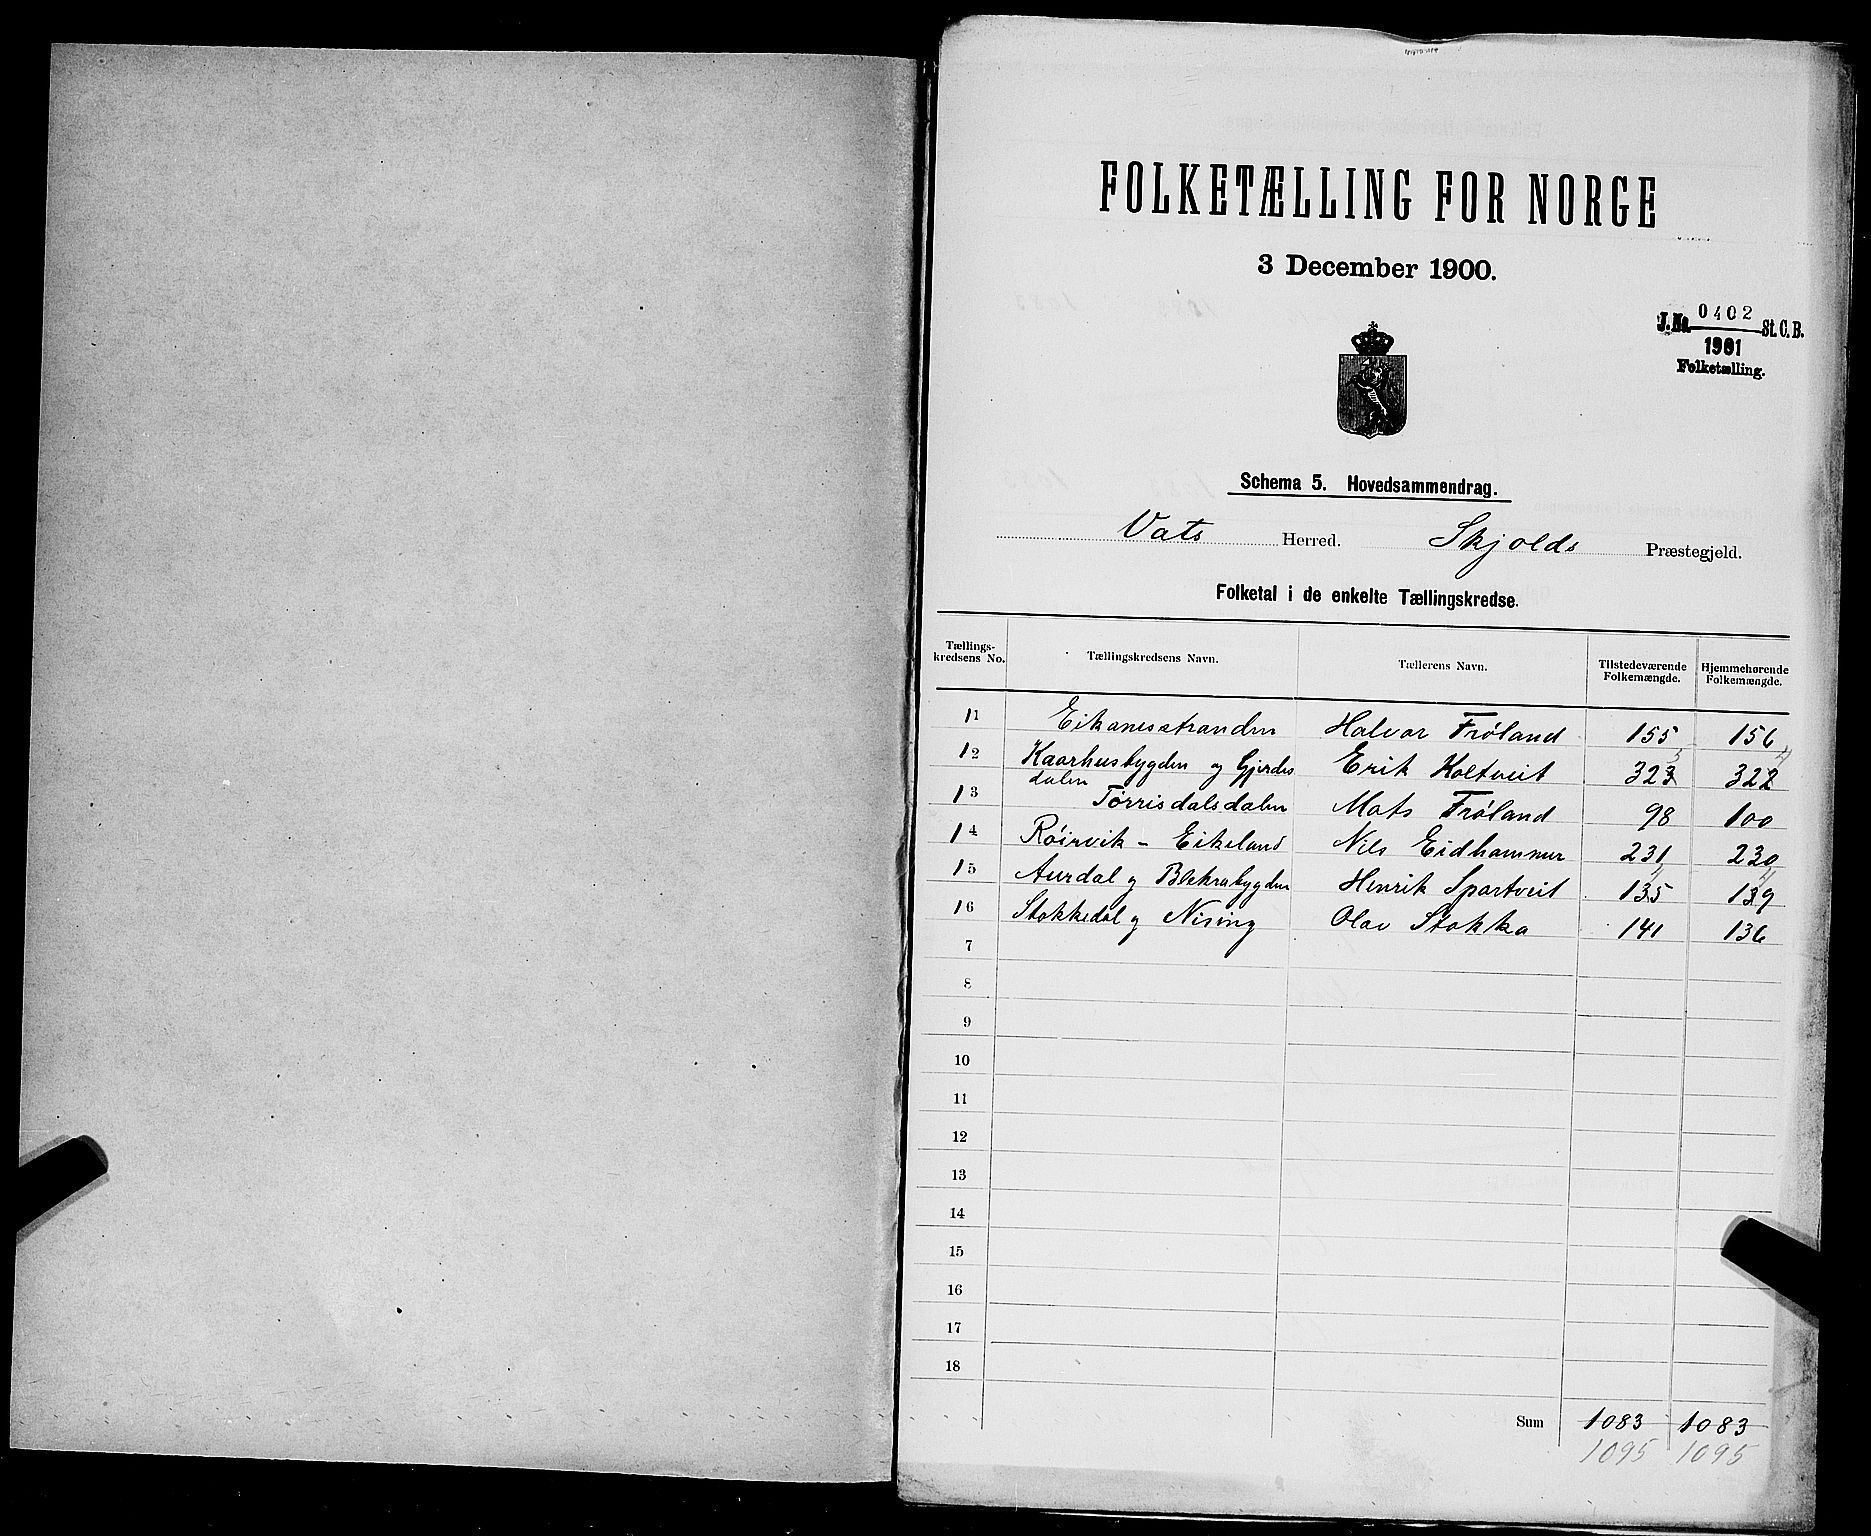 FOLKETÆLLING FOR NORGE
3 December 1900.
J.No. 0402 St. C. B.
1901
Folketælling.
Schema 5. Hovedsammendrag.
Vats Herred. Skjolds Præstegjeld.
Folketal i de enkelte Tællingskredse.
Tællings-kredsens No. Tællingskredsens Navn. Tællerens Navn. Tilstedeværende Folkemængde. Hjemmehørende Folkemængde.
1 Eikanesstranden Halvor Frøland 155 156
2 Kaarhusbygden og Gjerdes Erik Koltveit 323 322
dalen
3 Tørrisdalsdalen Mats Frøland 98 100
4 Røirvik - Eikeland Nils Eidhammer 231 230
5 Aurdal og Blikrabygden Henrik Spartveit 135 139
6 Stokkedal og Nising Olav Stokka 141 136
7
8
9
10
11
12
13
14
15
16
17
18
Sum 1083 1083
1095 1095